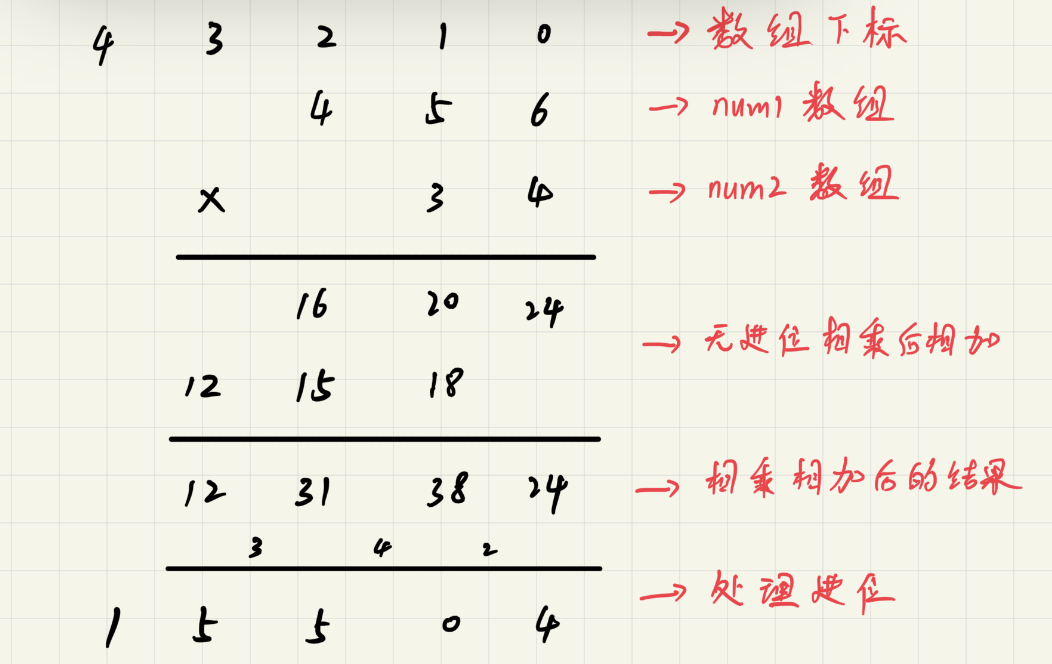 4 3 2 1 0 → 数组下标
4 5 6 → num1 数组
× 3 4 → num2 数组
16 20 24
→ 无进位相乘后相加
12 15 18
12 31 38 24 → 相乘相加后的结果
3 4 2
1 5 5 0 4 → 处理进位